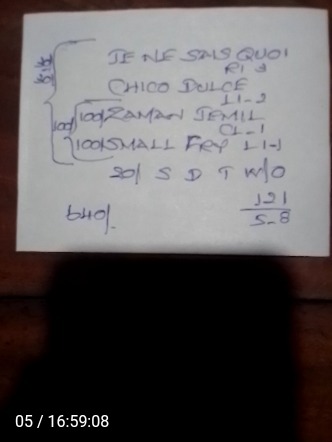 JE NE SAIS QUOI
R1-3
CHICO DULCE
L1-2
100/ ZAMAN JEMIL
CL-1
100/ SMALL FRY L1-1
100/
20/ S D T W/O
121
640/- 5-8
05 / 16:59:08